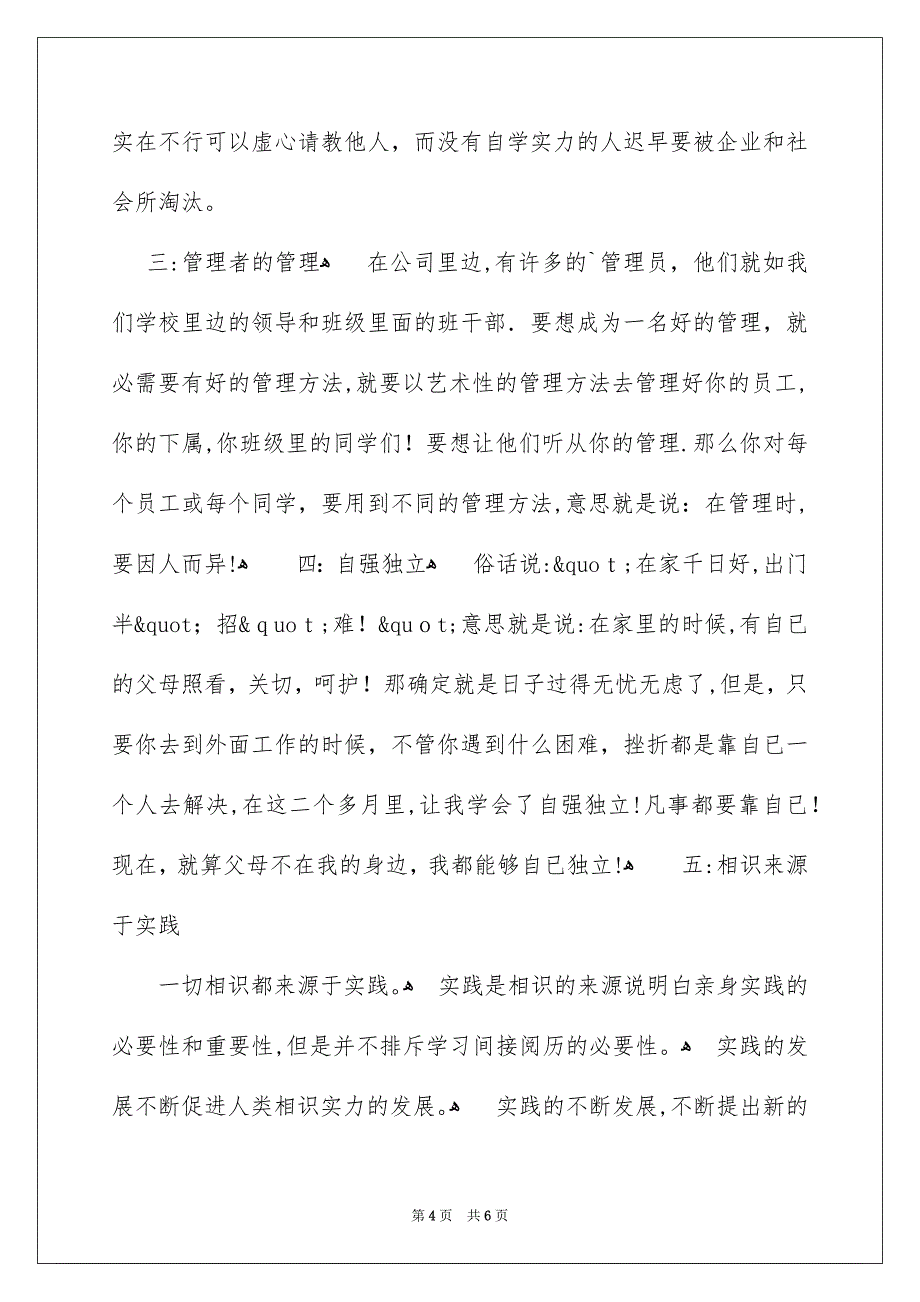 实在不行可以虚心请教他人，而没有自学实力的人迟早要被企业和社
会所淘汰。
三:管理者的管理ﻫ 在公司里边,有许多的`管理员，他们就如我
们学校里边的领导和班级里面的班干部．要想成为一名好的管理，就
必需要有好的管理方法,就要以艺术性的管理方法去管理好你的员工,
你的下属,你班级里的同学们！要想让他们听从你的管理.那么你对每
个员工或每个同学，要用到不同的管理方法,意思就是说：在管理时,
要因人而异!ﻫ 四：自强独立ﻫ 俗话说:&quoｔ;在家千日好,出门
半&quot；招&ｑuoｔ;难！&quｏt;意思就是说:在家里的时候,有自已
的父母照看，关切，呵护！那确定就是日子过得无忧无虑了,但是，只
要你去到外面工作的时候，不管你遇到什么困难，挫折都是靠自已一
个人去解决,在这二个多月里,让我学会了自强独立!凡事都要靠自已！
现在，就算父母不在我的身边，我都能够自已独立!ﻫ 五:相识来源
于实践
一切相识都来源于实践。ﻫ 实践是相识的来源说明白亲身实践的
必要性和重要性,但是并不排斥学习间接阅历的必要性。ﻫ 实践的发
展不断促进人类相识实力的发展。ﻫ 实践的不断发展,不断提出新的
第4页 共6页